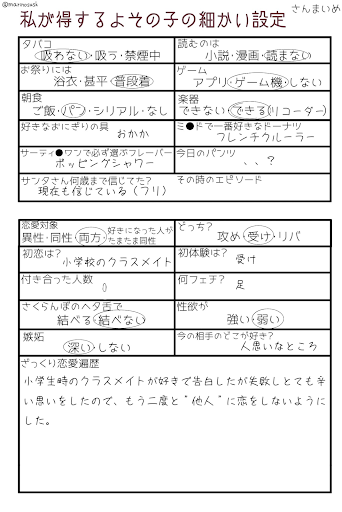 @marinosuisui
私が得するよその子の細かい設定
さんまいめ
タバコ
吸わない・吸う・禁煙中
読むのは
小説・漫画・読まない
お祭りには
浴衣・甚平・普段着
ゲーム
アプリ・ゲーム機・しない
朝食
ご飯・パン・シリアル・なし
楽器
できない・できる(リコーダー)
好きなおにぎりの具
おかか
ミ●ドで一番好きなドーナツ
フレンチクルーラー
サーティ●ワンで必ず選ぶフレーバー
ポッピングシャワー
今日のパンツ
、、？
サンタさん何歳まで信じてた？
現在も信じている（フリ）
その時のエピソード
恋愛対象
異性・同性・両方
好きになった人が
たまたま同性
どっち？
攻め・受け・リバ
初恋は？
小学校のクラスメイト
初体験は？
受け
付き合った人数
0
何フェチ？
足
さくらんぼのヘタ舌で
結べる・結べない
性欲が
強い・弱い
嫉妬
深い・しない
今の相手のどこが好き？
人思いなところ
ざっくり恋愛遍歴
小学生時のクラスメイトが好きで告白したが失敗しとても辛
い思いをしたので、もう二度と"他人"に恋をしないように
した。